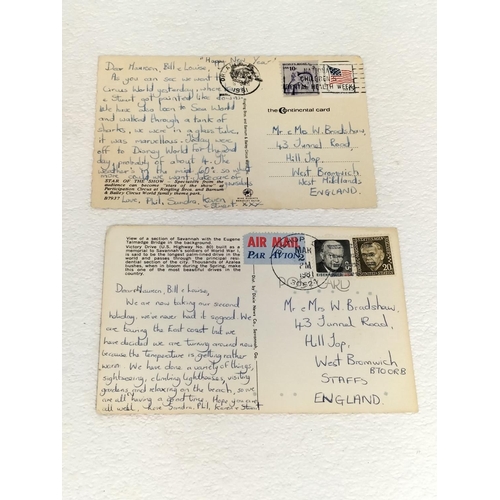 "Happy New Year!"
Dear Maureen, Bill & Louise,
As you can see we went to
Circus World yesterday where
& Stuart got painted like clowns.
We have also been to Sea World
and walked through a tank of
sharks, we were in a glass tube,
it was marvellous. Today were
off to Disney World for the 3rd
day probably of about 4. The
weather's in the mid 60's so
more could we want.
STAR OF THE SHOW - Spectators from the
audience can become "stars of the show" at
Participation Circus at Ringling Bros. and Barnum
& Bailey Circus World family theme park.
B7937
Love, Phil, Sandra, Kevin
Stuart
xxx
the Continental card
1981
10c
CHILDREN'S
HEALTH WEEK
Mr & Mrs W. Bradshaw,
43 Tunnel Road,
Hill Top,
West Bromwich,
West Midlands
ENGLAND.
View of a section of Savannah with the Eugene
Talmadge Bridge in the background.
Victory Drive (U.S. Highway No. 80) built as a
memorial to Savannah's soldiers of World War I
is said to be the longest palm-lined drive in the
world and passes through the principal resi-
dential section of the city. Thousands of Azalea
bushes, when in bloom during the Spring, make
this one of the most beautiful drives in the
country.
Dear Maureen, Bill & Louise,
We are now taking our second
holiday, we're now had it so good. We
are touring the East coast but we
have decided we are turning around now
because the temperature is getting rather
warm. We have done a variety of things,
sightseeing, climbing lighthouses, visiting
gardens and relaxing on the beach, so we
are all having a great time. Hope you are
all well. Love Sandra, Phil, Kevin & Stuart
Pub. by Dixie News Co., Savannah, Ga.
AIR MAIL
PAR AVION
MAR
PM
1981
20c
CARD
Mr & Mrs W. Bradshaw,
43 Tunnel Road,
Hill Top,
West Bromwich
B70 0RB
STAFFS
ENGLAND.